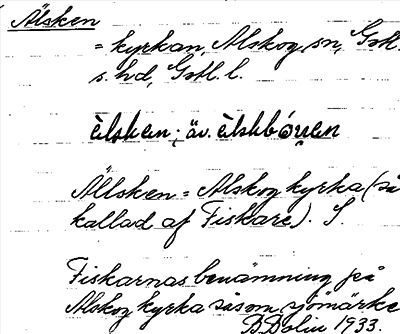 Älsken
= kyrkan, Alskog sn, Gotl.
s. hd, Gotl. l.
èlsken; äv. èlskbóυen
Ällsken = Alskog kyrka (så
kallad af Fiskare). S.
Fiskarnas benämning på
Alskog kyrka såsom sjömärke
B. Dolin 1933.